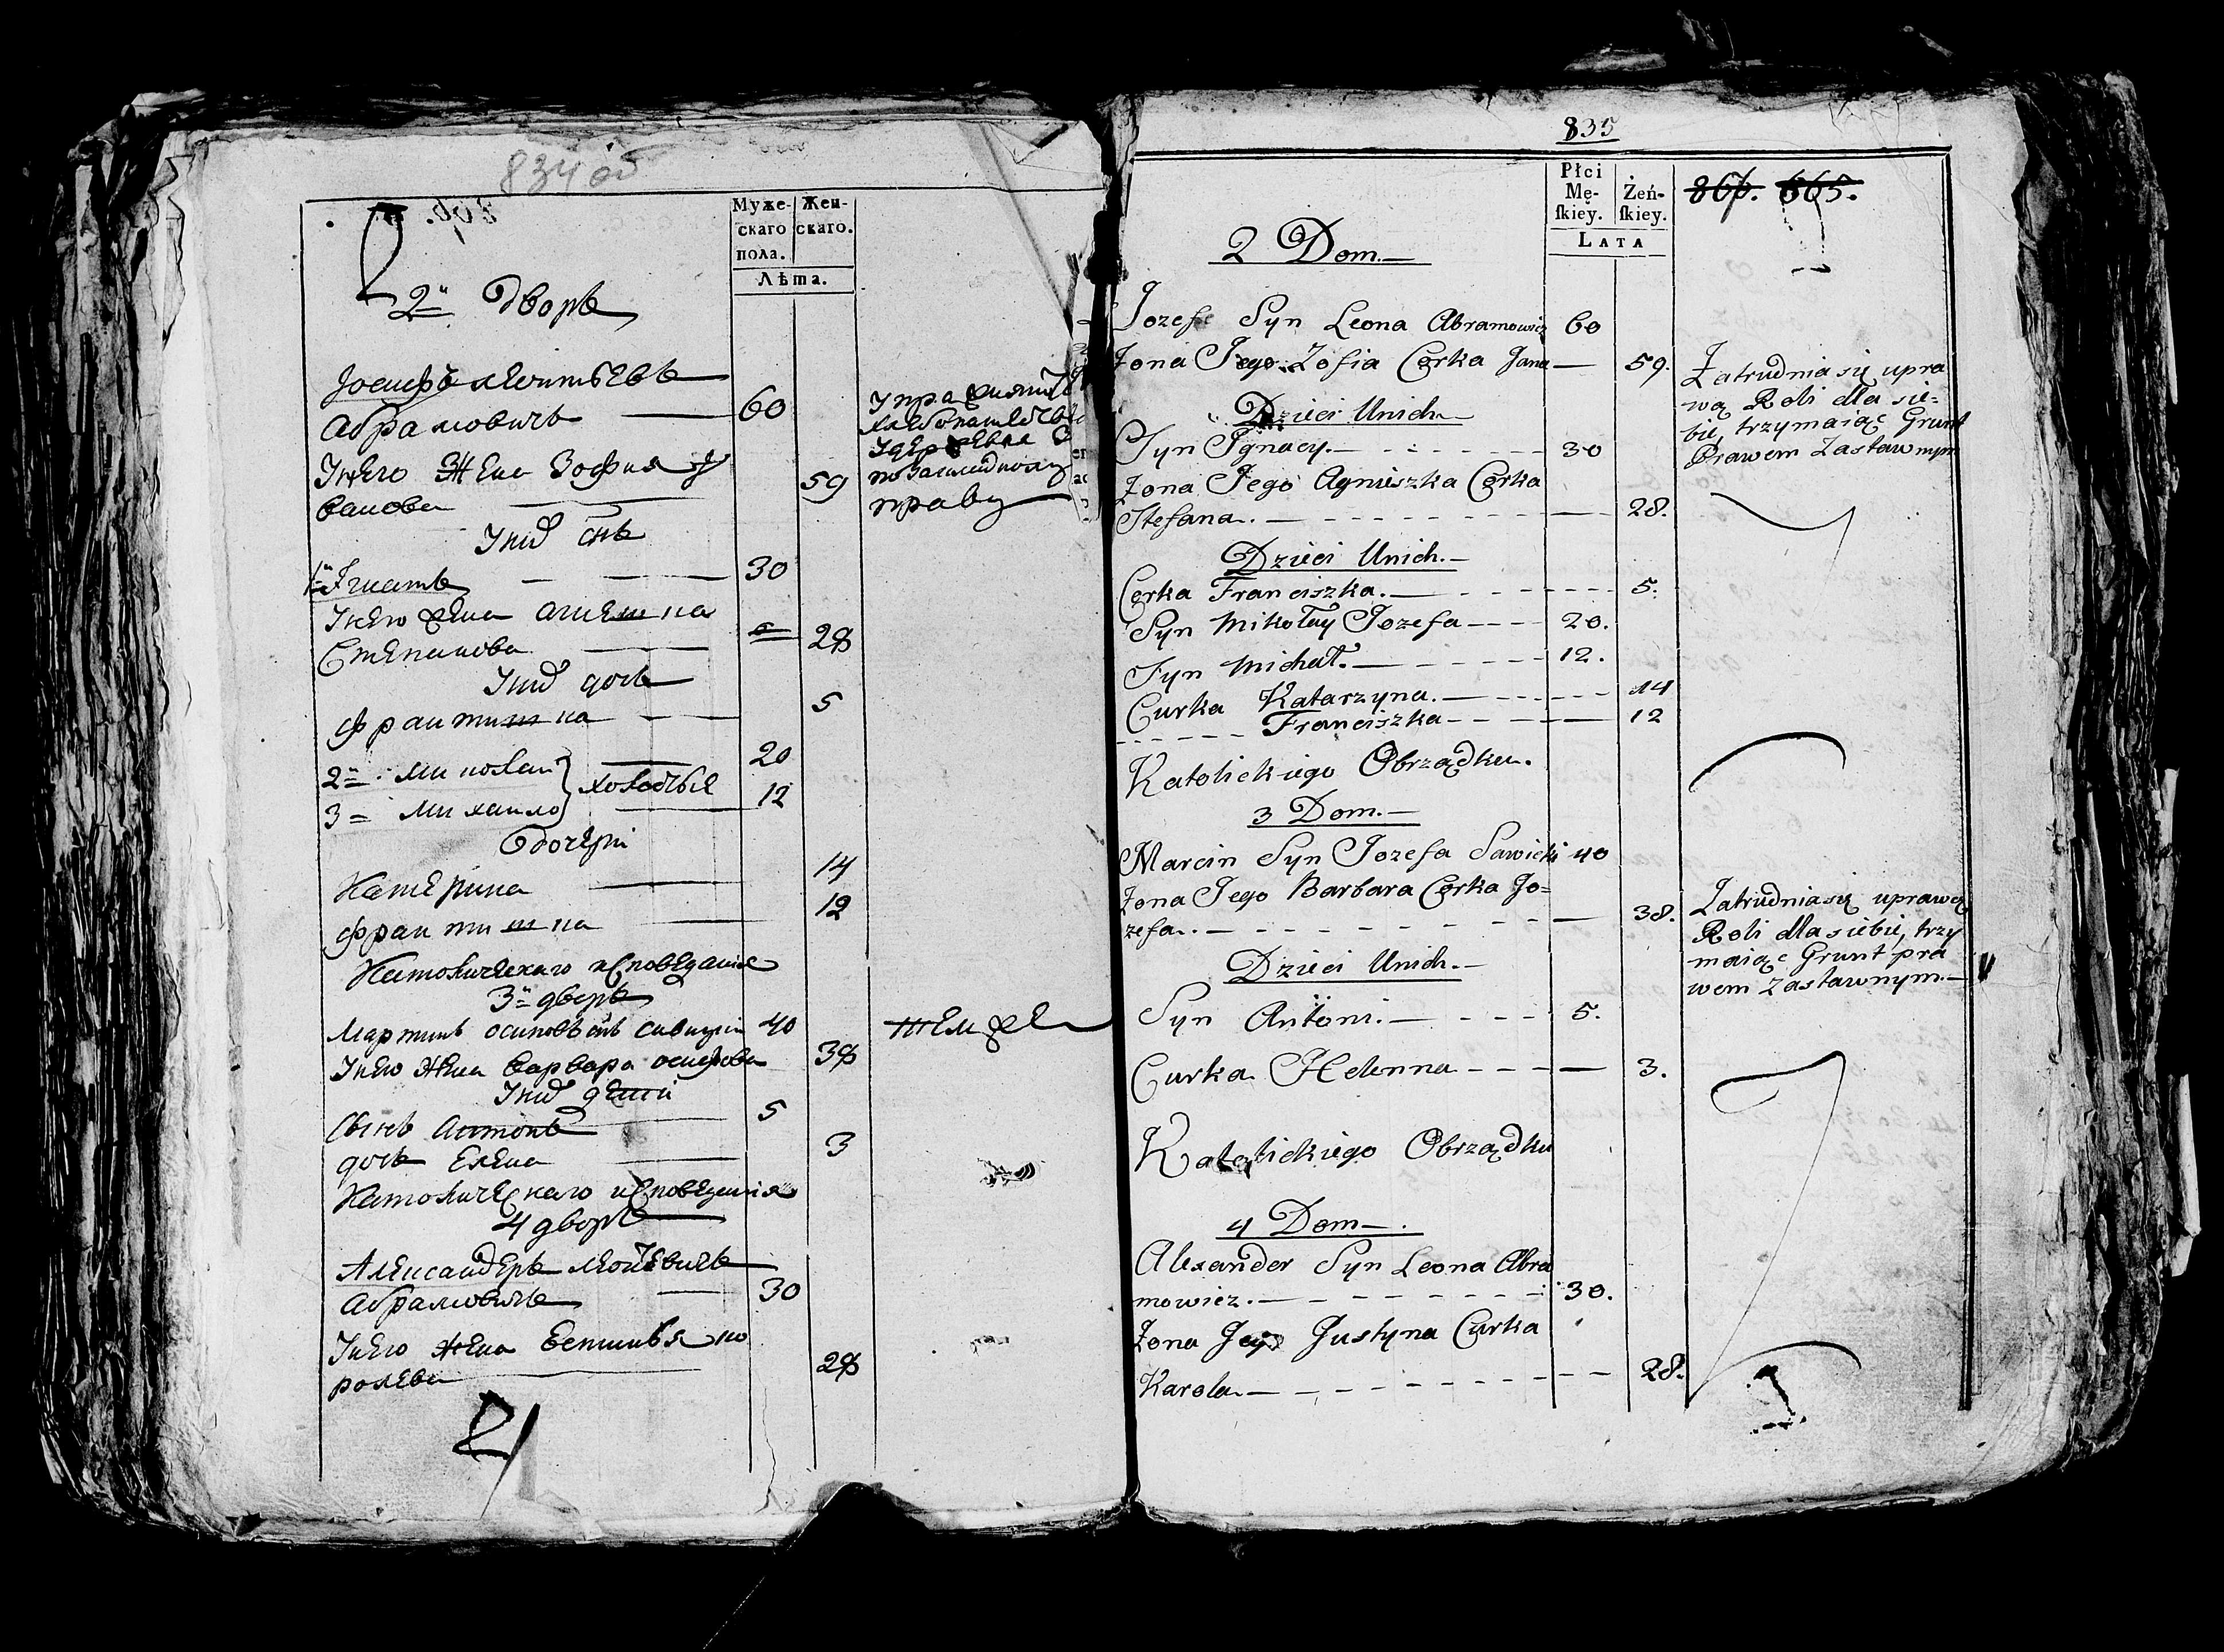 834 об
Муже- Жен-
скаго скаго.
пола.
Лѣта.
2й Дворъ
Іосифъ Леонтьевъ
Абрамовичъ 60
У него Жена Зофия И
ванова 59
У них снъ
1й Игнатъ 30
У него жена Агнешка
Степанова 28
У них дочь
Франтишка 5
2й Миколай 20
3 Михайло холостые 12
Дочери
Катерина 14
Франтишка 12
Католическаго исповедания
3й дворъ
Мартинъ осиповъ снъ Савицкий 40
У него Жена Варвара осипова 38
У них дети
Сынъ Антонъ 5
дочь Елена 3
Католическаго исповедания
4 дворъ
Александеръ Леонтьевичъ
Абрамовичъ 30
У него Жена Ка
ролева 28
праву
Тем же
835
Płci
Mę- Żeń-
skiey. skiey.
LATA
866. 665.
2 Dom.
Jozef Syn Leona Abramowicz 60
Żona Jego Zofia Corka Jana 59.
Dzieci Unich
Syn Jgnacy. 30
Żona Jego Agnieszka Corka
Stefana. 28.
Dzieci Unich.
Corka Franciszka. 5.
Syn Mikołay Jozefa 20.
Syn Michał. 12.
Curka Katarzyna. 14
Franciszka 12
Katolickiego Obrządku.
3 Dom.
Marcin Syn Jozefa Sawicki 40
Żona Jego Barbara Corka Jo=
zefa. 38.
Dzieci Unich.
Syn Antoni. 5.
Curka Helenna 3.
Katolickiego Obrządku
4 Dom.
Alexander Syn Leona Abra
mowicz. 30.
Żona Jego Justyna Curka
Karola. 28.
Zatrudnia się upra
wą Roli dla sie=
bie, trzymaiąc Grunt
Prawem Zastawnym
Zatrudnia się uprawą
Roli dla siebie, trzy
maiąc Grunt pra
wem Zastawnym.